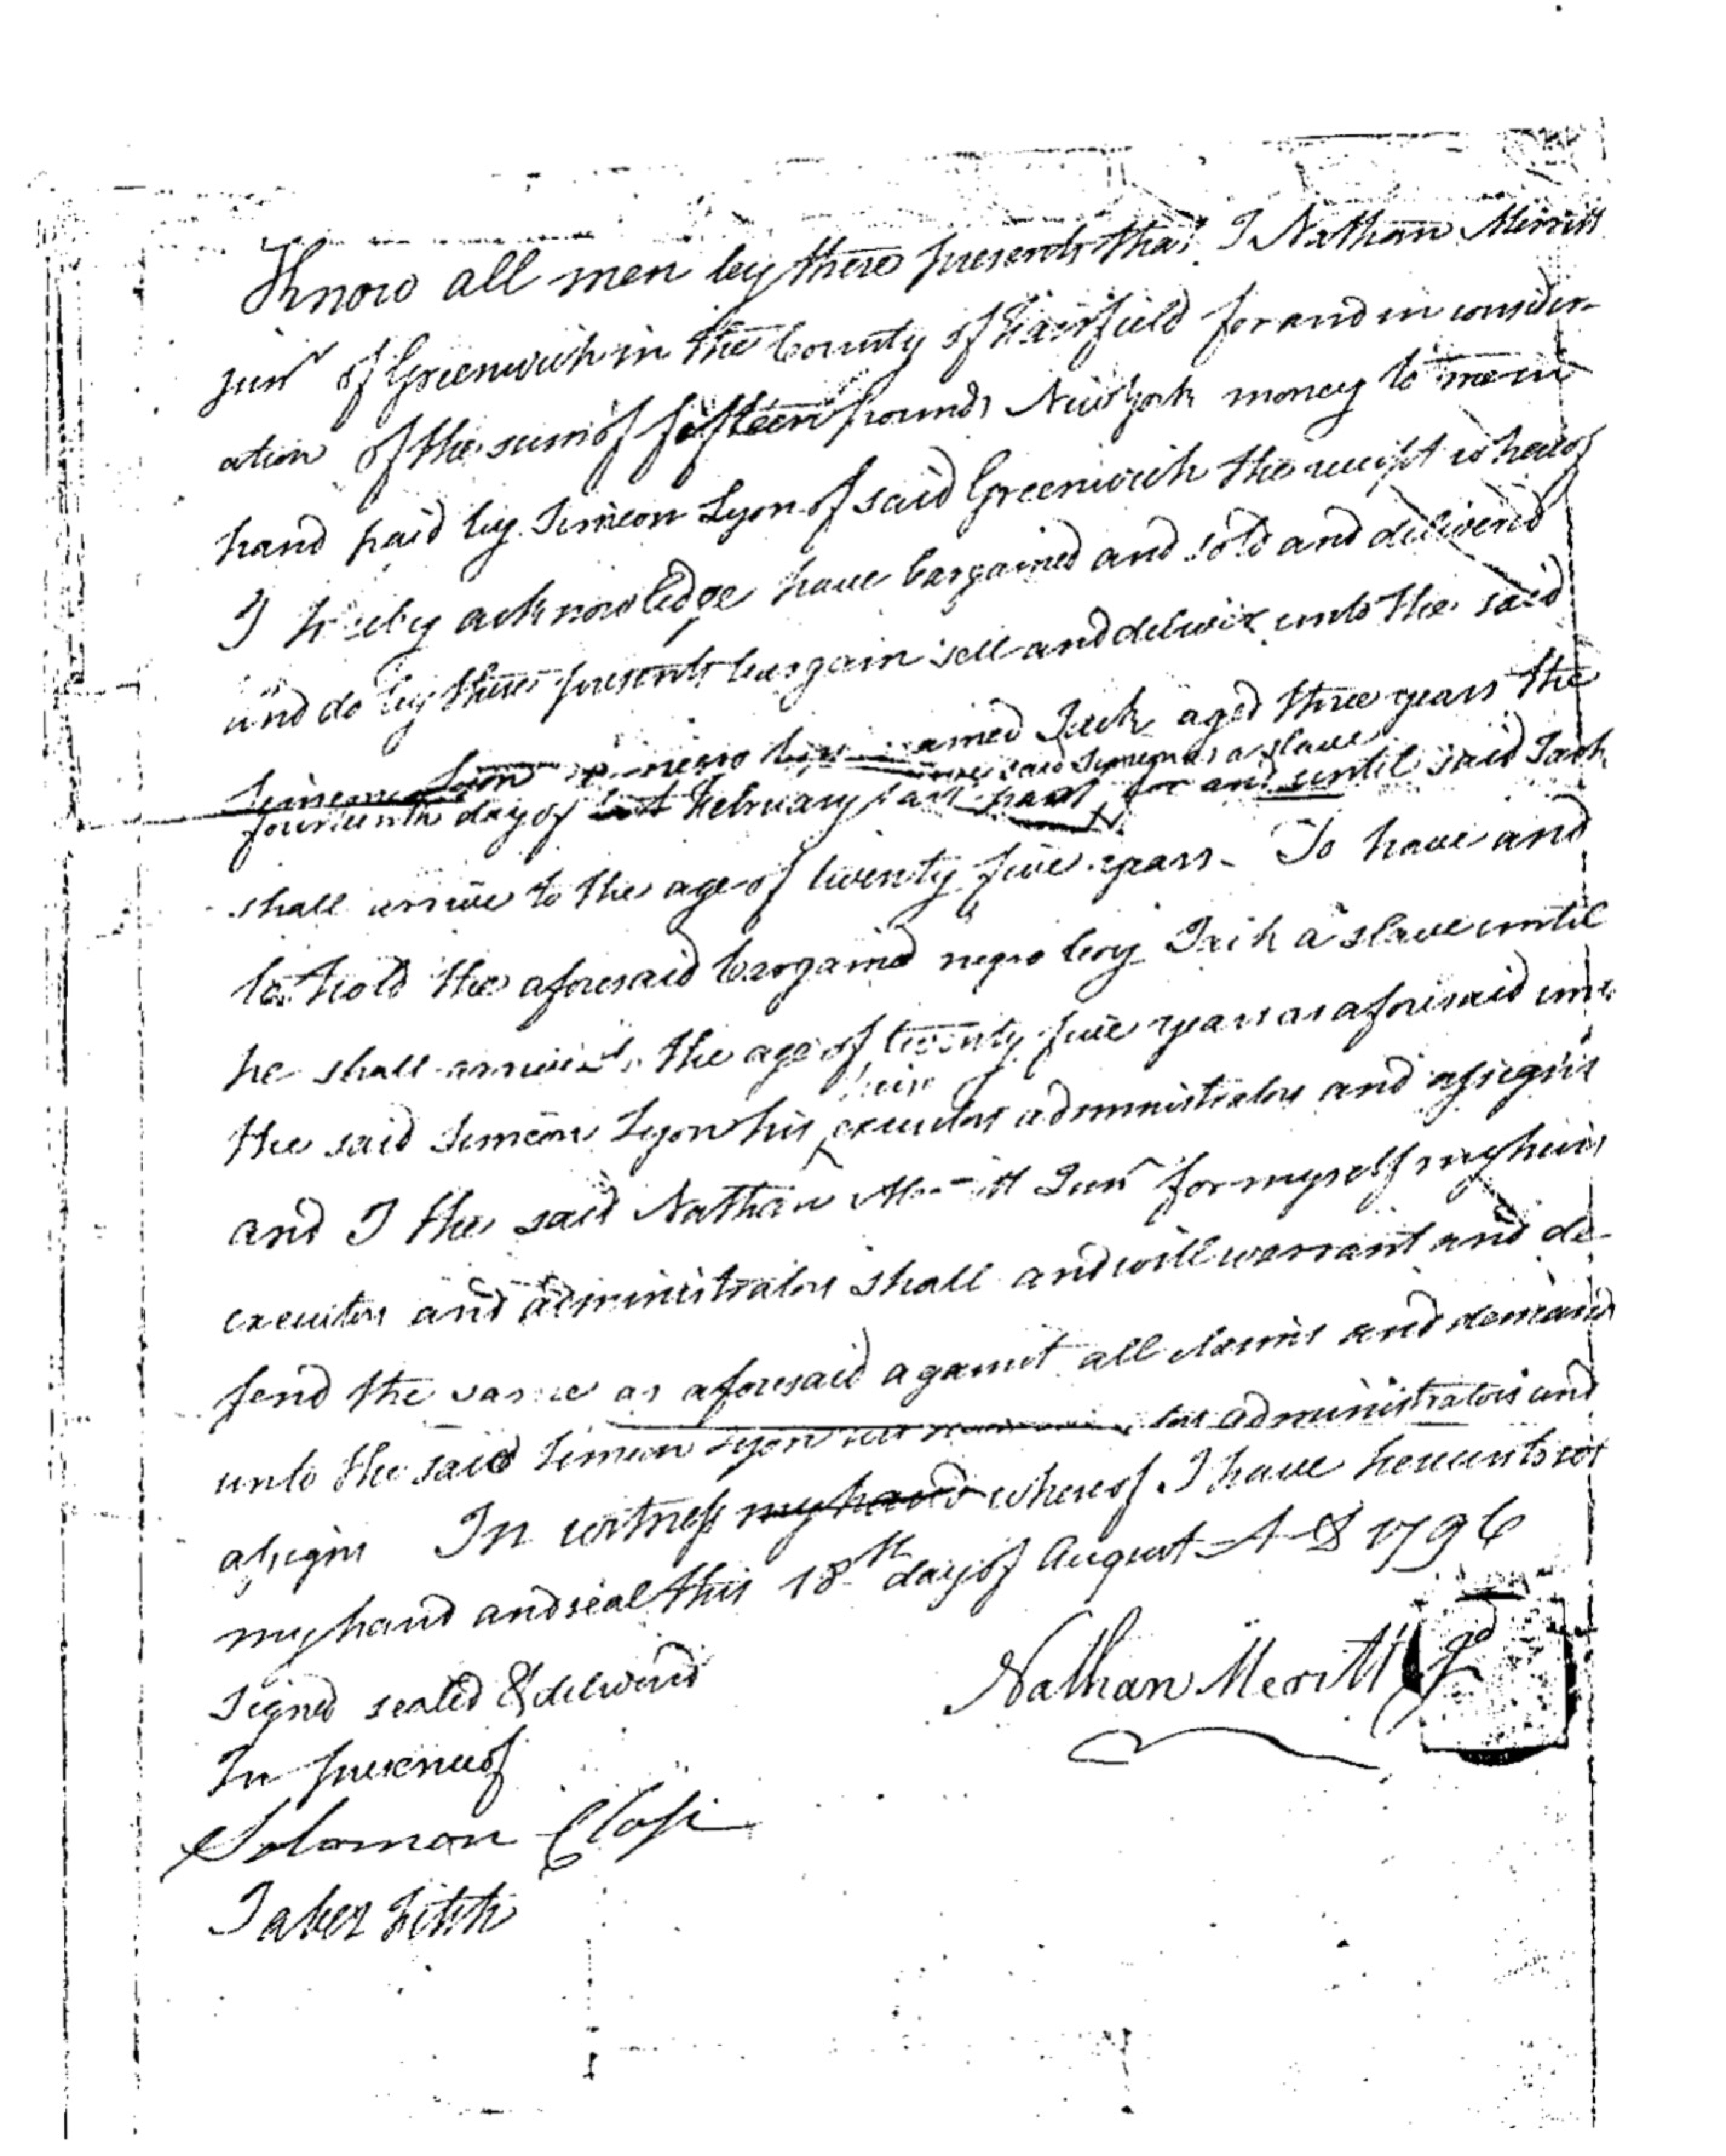 Know all men by these presents that I Nathan Merritt
junr of Greenwich in the County of Fairfield for and in consider-
ation of the sum of fifteen pounds New York money to me in
hand paid by Simeon Lyon of said Greenwich the receipt whereof
I hereby acknowledge have bargained and sold and deliverid
and do by these presents bargain sell and deliver unto the said
Simeon Lyon a negro boy named Jack aged three years the
said Simeon as a slave
fourteenth day of February last past for and until said Jack
shall arrive to the age of twenty five years - To have and
to hold the aforesaid bargained negro boy Jack a slave until
he shall arrive to the age of twenty five years as aforesaid unto
heirs
the said Simeon Lyon his executors administrators and assigns
and I the said Nathan Merritt Junr for myself my heirs
executors and administrators shall and will warrant and de-
fend the same as aforesaid against all claims and demands
unto the said Simeon Lyon his administrators and
assigns In witness my hand whereof I have hereunto set
my hand and seal this 18th day of August A D 1796
Signed sealed & deliverd
In presence of
Nathan Merritt 2d
Solomon Close
Jabez Fitch